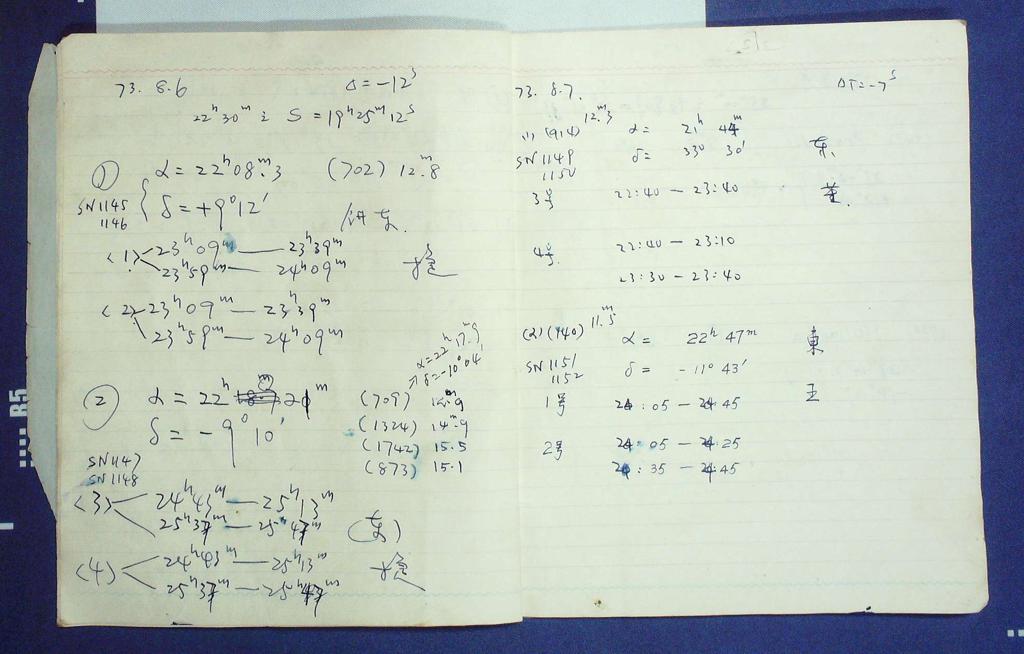 73. 8.6 Δ=-12ˢ
22ʰ30ᵐ S=19ʰ25ᵐ12ˢ
① α=22ʰ08ᵐ.3 (702) 12ᵐ.8
SN1145
1146
δ=+9°12′
<1> 23ʰ09ᵐ — 23ʰ39ᵐ
23ʰ59ᵐ — 24ʰ09ᵐ
<2> 23ʰ09ᵐ — 23ʰ39ᵐ
23ʰ59ᵐ — 24ʰ09ᵐ
α=22ʰ17ᵐ.9
δ=-10°04′
② α=22ʰ 20ᵐ (709)
δ=-9°10′ (1324) 14ᵐ.9
(1742) 15.5
(873) 15.1
SN1147
SN1148
<3> 24ʰ43ᵐ — 25ʰ13ᵐ
25ʰ37ᵐ — 25ʰ47ᵐ
(东)
<4> 24ʰ43ᵐ — 25ʰ13ᵐ
25ʰ37ᵐ — 25ʰ47ᵐ
73. 8.7. ΔT=-7ˢ
(1) (914) 12ᵐ.3 α= 21ʰ 44ᵐ
SN1149
1150
δ= 33° 30′ 东.
3号 22:40 — 23:40 董.
4号. 22:40 — 23:10
23:30 — 23:40
(2) (140) 11ᵐ.5 α= 22ʰ 47ᵐ 東
SN1151
1152
δ= -11° 43′
王
1号 24:05 — 24:45
2号 24:05 — 24:25
24:35 — 24:45
B5